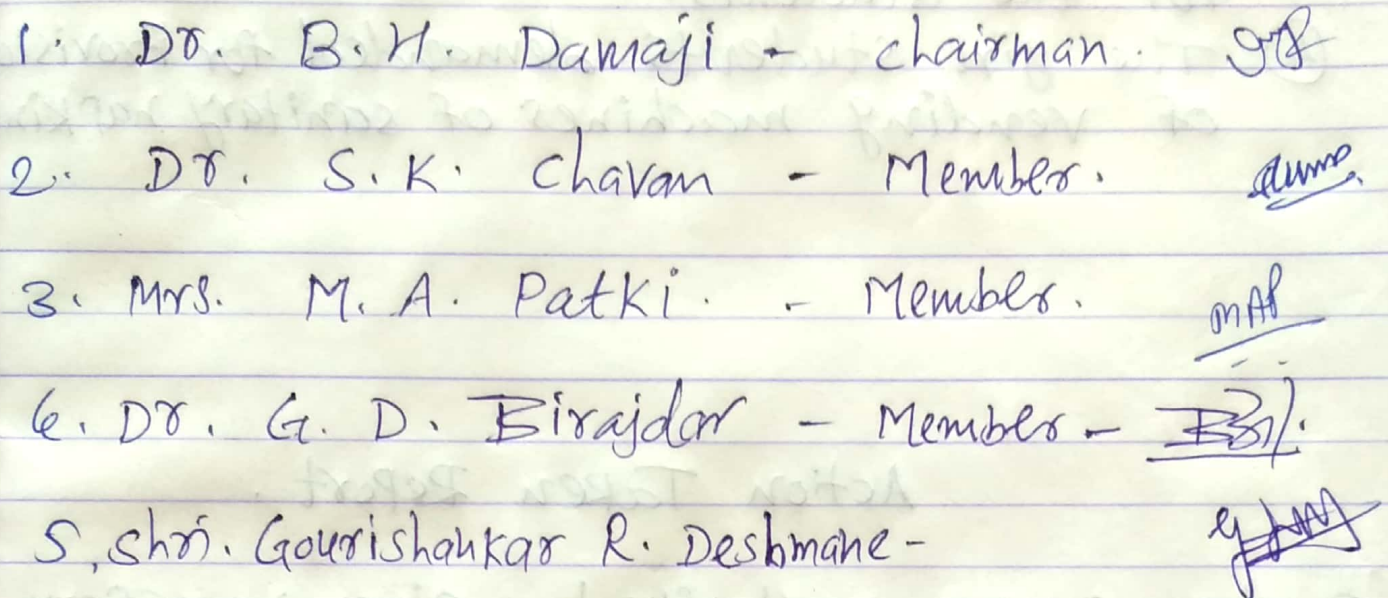 1. Dr. B. H. Damaji - chairman.
2. Dr. S. K. Chavan - Member.
3. Mrs. M. A. Patki. - Member. MAP
6. Dr. G. D. Birajdar - Member -
5, Shri. Gourishankar R. Deshmane -